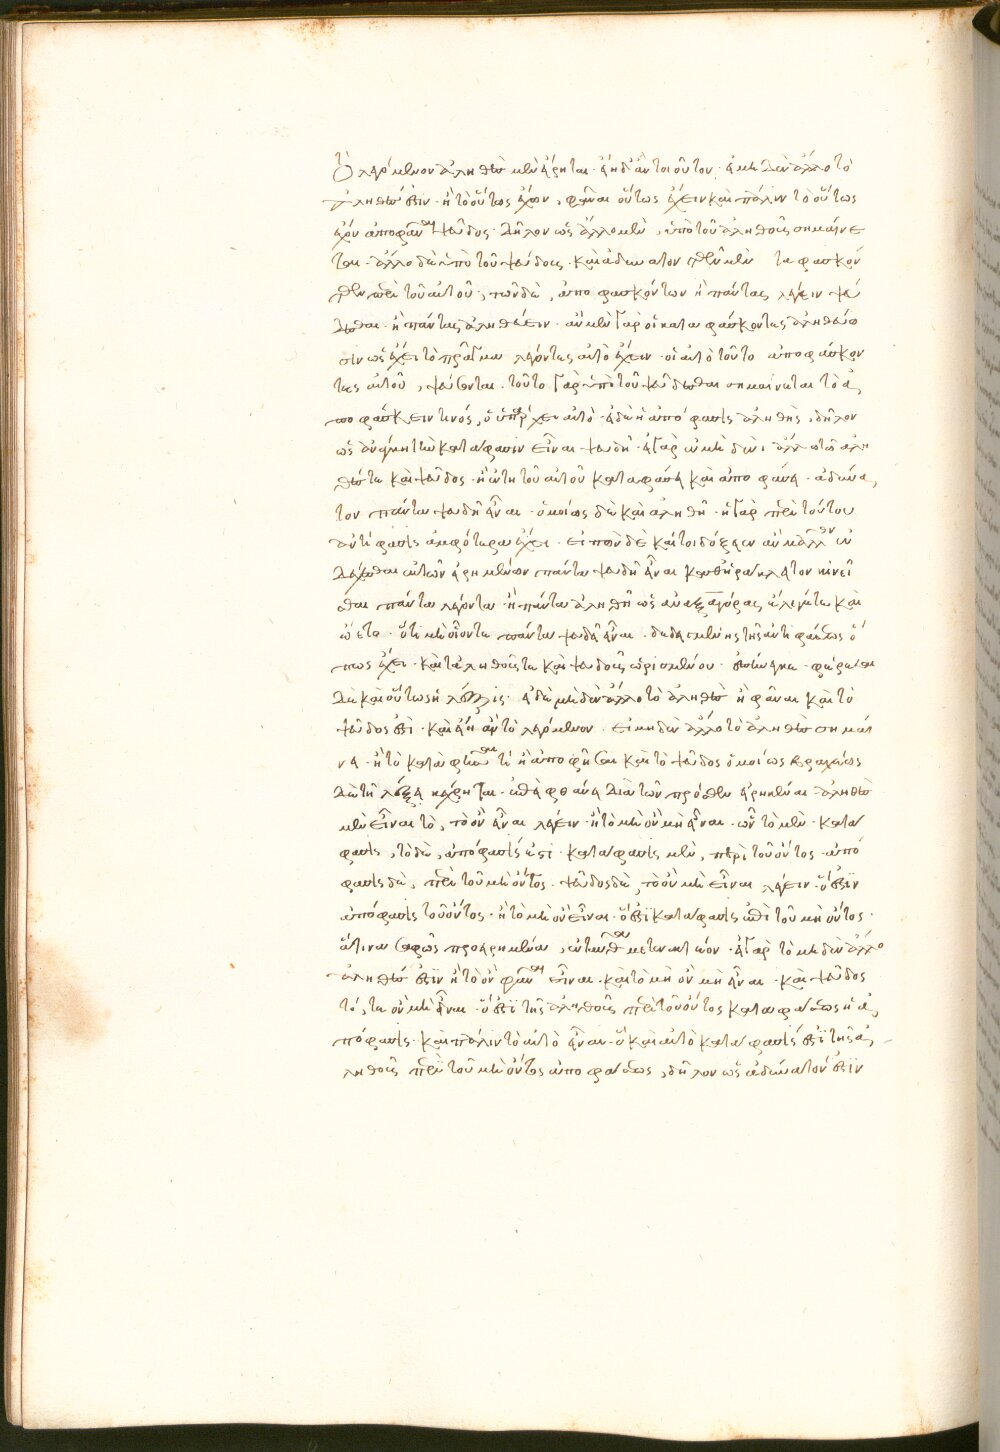 τὸ λεγόμενον ἀληθὲς μὲν εἴρηται· εἴη δ' ἂν τοιοῦτον· εἰ μηδὲν ἄλλο τὸ
ἀληθές ἐστιν· ἢ τὸ οὕτως ἔχον, φάναι οὕτως ἔχειν καὶ πάλιν τὸ οὕτως
ἔχον ἀποφάναι ψεῦδος· δῆλον ὡς ἄλλο μὲν, ὑπὸ τοῦ ἀληθοῦς σημαίνε
ται· ἄλλο δὲ ὑπὸ τοῦ ψεύδους· καὶ ἀδύνατον τῶν μὲν τα φασκόν
των περὶ τοῦ αὐτοῦ, τῶν δὲ, ἀποφασκόντων ἢ πάντας λέγειν ψεύ
δεσθαι· ἢ πάντας ἀληθεύειν· ἂν μὲν γὰρ οἱ καταφάσκοντες ἀληθεύω
σιν ὡς ἔχει τὸ πρᾶγμα λέγοντες αὐτὸ ἔχειν· οἱ αὐτὸ τοῦτο ἀποφάσκον
τες αὐτοῦ, ψεύσονται· τοῦτο γὰρ ὑπὸ τοῦ ψεύδεσθαι σημαίνεται τὸ ἀ
ποφάσκειν τινός, ὃ ὑπάρχει αὐτό· εἰ δὲ ἡ ἀπόφασις ἀληθὴς, δῆλον
ὡς ἀνάγκη τὴν κατάφασιν εἶναι ψευδῆ· εἰ γὰρ οὐ μηδὲν ἀλλ'
θές τε καὶ ψεῦδος· ἢ τοῦ αὐτοῦ κατάφασις καὶ ἀπόφασις· ἀδύνα
τον πάντα ψευδῆ εἶναι· ὁμοίως δὲ καὶ ἀληθῆ· ἡ γὰρ περὶ τούτου
ἀντίφασις ἀμφότερα ἔχει· εἰπὼν δὲ καίτοι δόξαιεν ἂν μᾶλλον
δέχεσθαι αὐτῶν εἰρημένων πάντα ψευδῆ εἶναι καθ' ἡράκλειτον κινεῖ
σθαι πάντα λέγοντα· ἢ πάντα ἀληθῆ ὡς ἀναξαγόρας ἔλεγέν τε καὶ
ᾤετο· ὅτι μὴ οἷόν τε πάντα ψευδῆ εἶναι· δεδειγμένης τῆς ἀντιφάσεως ὅ
πως ἔχει· καὶ τἀληθοῦς τε καὶ ψευδοῦς ὡρισμένου· φέρεται
δὲ καὶ οὕτως ἡ λέξις· εἰ δὲ μηδὲν ἄλλο τὸ ἀληθὲς ἢ φάναι καὶ τὸ
ψεῦδός ἐστι· καὶ εἴη ἂν τὸ λεγόμενον· εἰ μηδὲν ἄλλο τὸ ἀληθὲς σημαί
νει· ἢ τὸ καταφῆσαι τί ἢ ἀποφῆσαι καὶ τὸ ψεῦδος ὁμοίως βραχέως
δὲ τῇ λέξει κέχρηται· διὰ τῶν πρόσθεν εἰρημένων ἀληθὲς
μὲν εἶναι τὸ, τὸ ὂν εἶναι λέγειν· ἢ τὸ μὴ ὂν μὴ εἶναι· ὧν τὸ μὲν· κατά
φασις, τὸ δὲ, ἀπόφασίς ἐστι· κατάφασις μὲν, περὶ τοῦ ὄντος· ἀπό
φασις δὲ, περὶ τοῦ μὴ ὄντος· ψεῦδος δὲ, τὸ ὂν μὴ εἶναι λέγειν· ὅ ἐστιν
ἀπόφασις τοῦ ὄντος· ἢ τὸ μὴ ὂν εἶναι· ὅ ἐστι κατάφασις ἐπὶ τοῦ μὴ ὄντος·
ἅτινα σαφῶς προειρημένα, εἰ γὰρ τὸ μηδὲν ἄλλο
ἀληθές ἐστιν ἢ τὸ ὂν φάναι εἶναι· καὶ τὸ μὴ ὂν μὴ εἶναι· καὶ ψεῦδος
τό, τε ὂν μὴ εἶναι· ὅ ἐστι τῆς ἀληθοῦς περὶ τοῦ ὄντος καταφάσεως ἡ ἀ
πόφασις· καὶ πάλιν τὸ αὐτὸ εἶναι· ὃ καὶ αὐτὸ κατάφασίς ἐστι τῆς ἀ
ληθοῦς περὶ τοῦ μὴ ὄντος ἀποφάσεως, δῆλον ὡς ἀδύνατόν ἐστιν